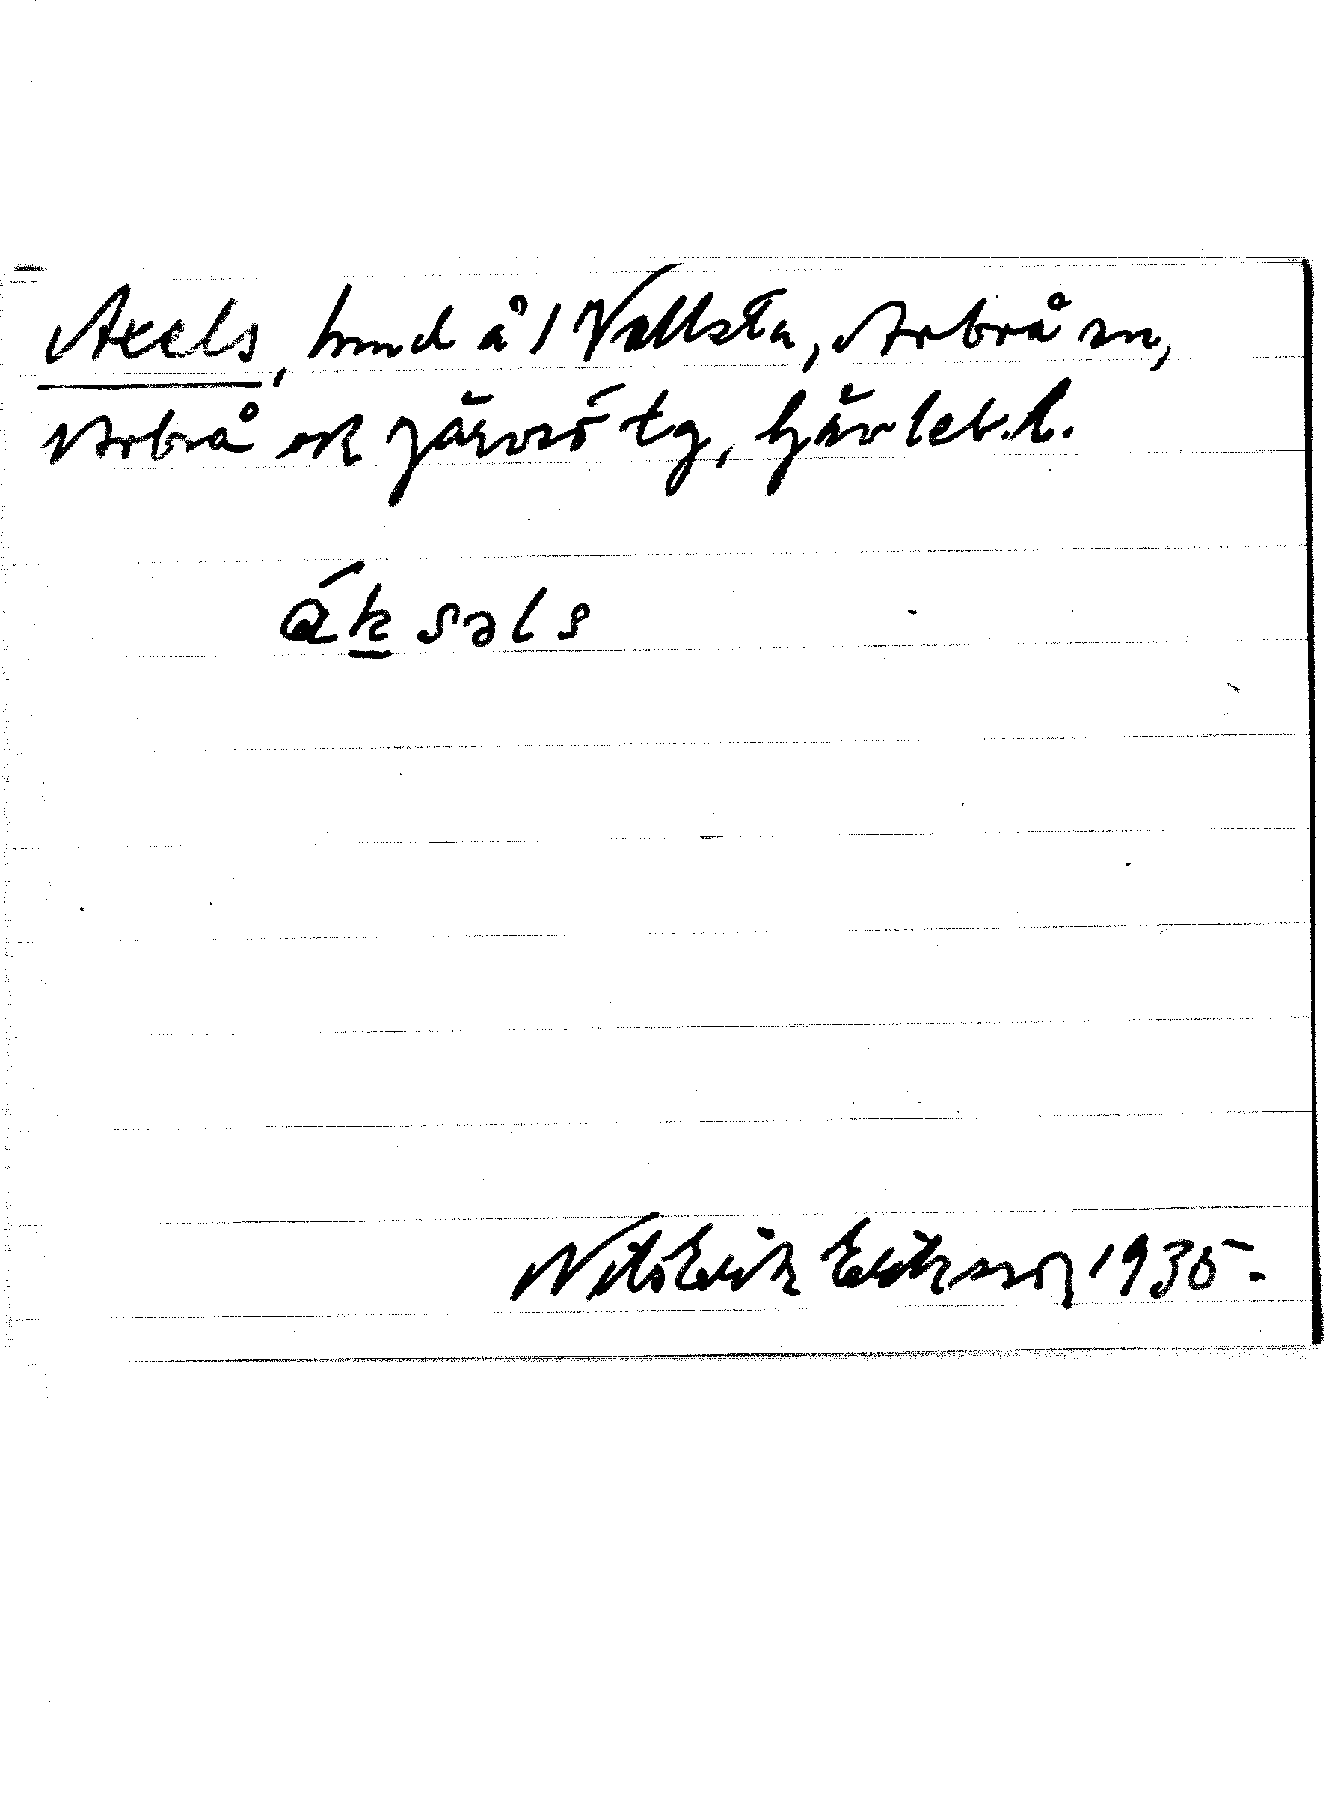 Axels, hmd å 1 Vallsta, Arbrå sn,
Arbrå ok Järvsö tg, Gävleb. l.
áksəls
Nils Erik Eriksson 1935.